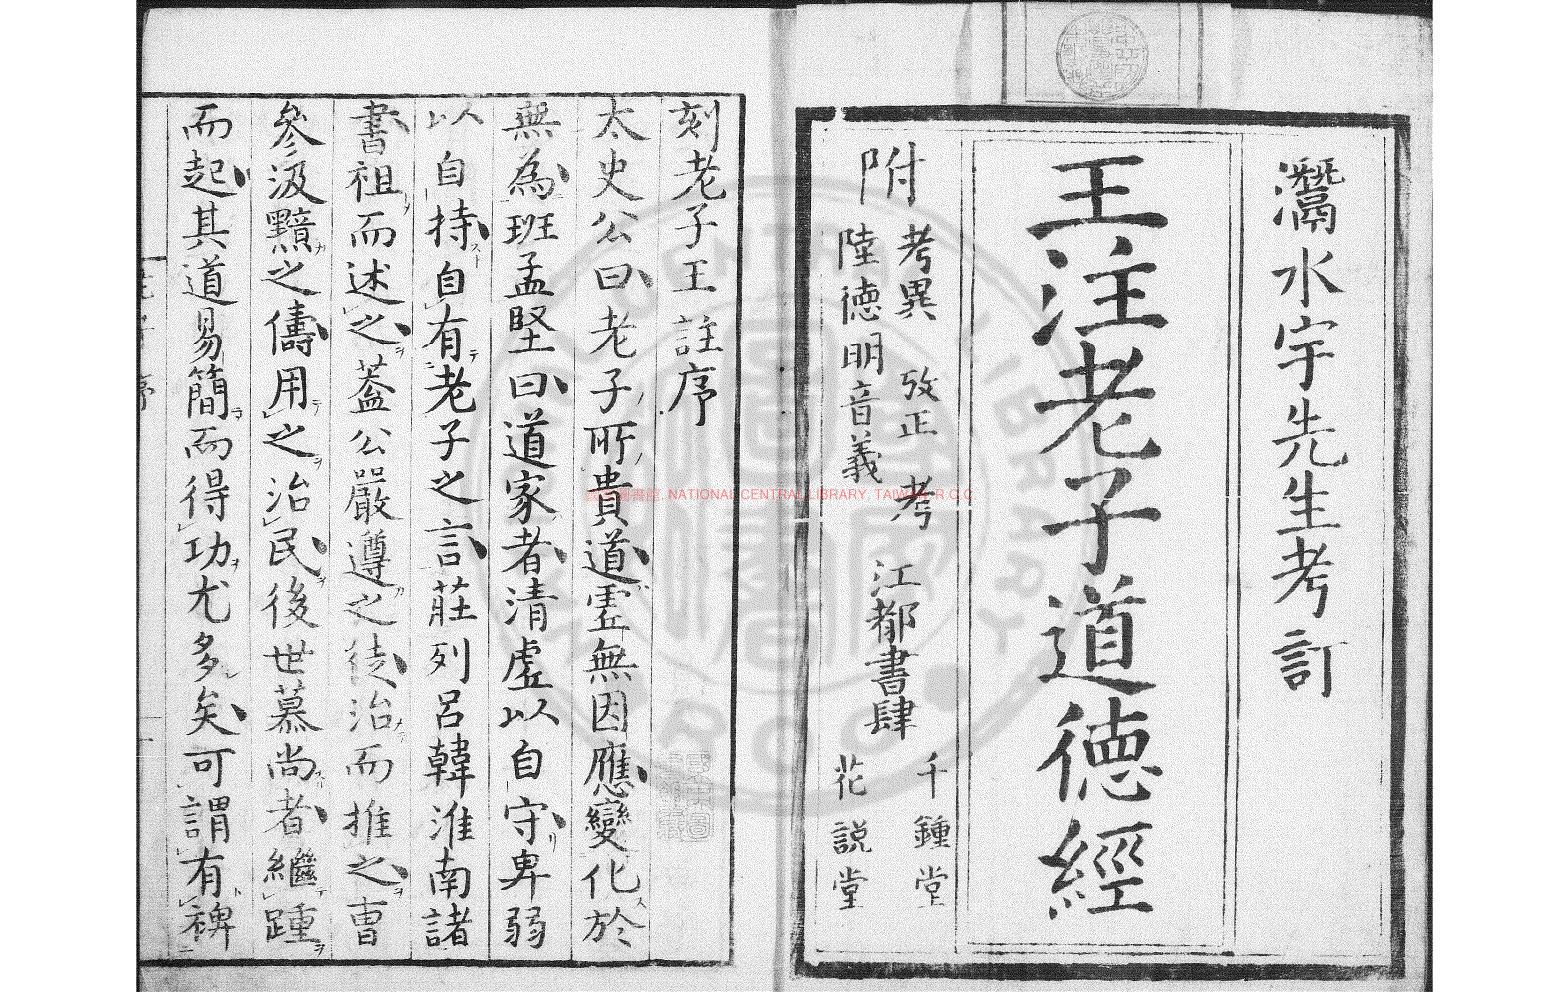 灊水宇先生考訂
王注老子道德經
附 考異 攷正 考
陸德明音義
江都書肆
千鍾堂
花說堂
刻老子王註序
太史公曰老子所貴道虛無因應變化於
無為班孟堅曰道家者清虛以自守卑弱
以自持自有老子之言莊列呂韓淮南諸
書祖而述之葢公嚴遵之徒治而推之曹
參汲黯之儔用之治民後世慕尚者繼踵
而起其道易簡而得功尤多矣可謂有裨
NATIONAL CENTRAL LIBRARY, TAIWAN, R.O.C